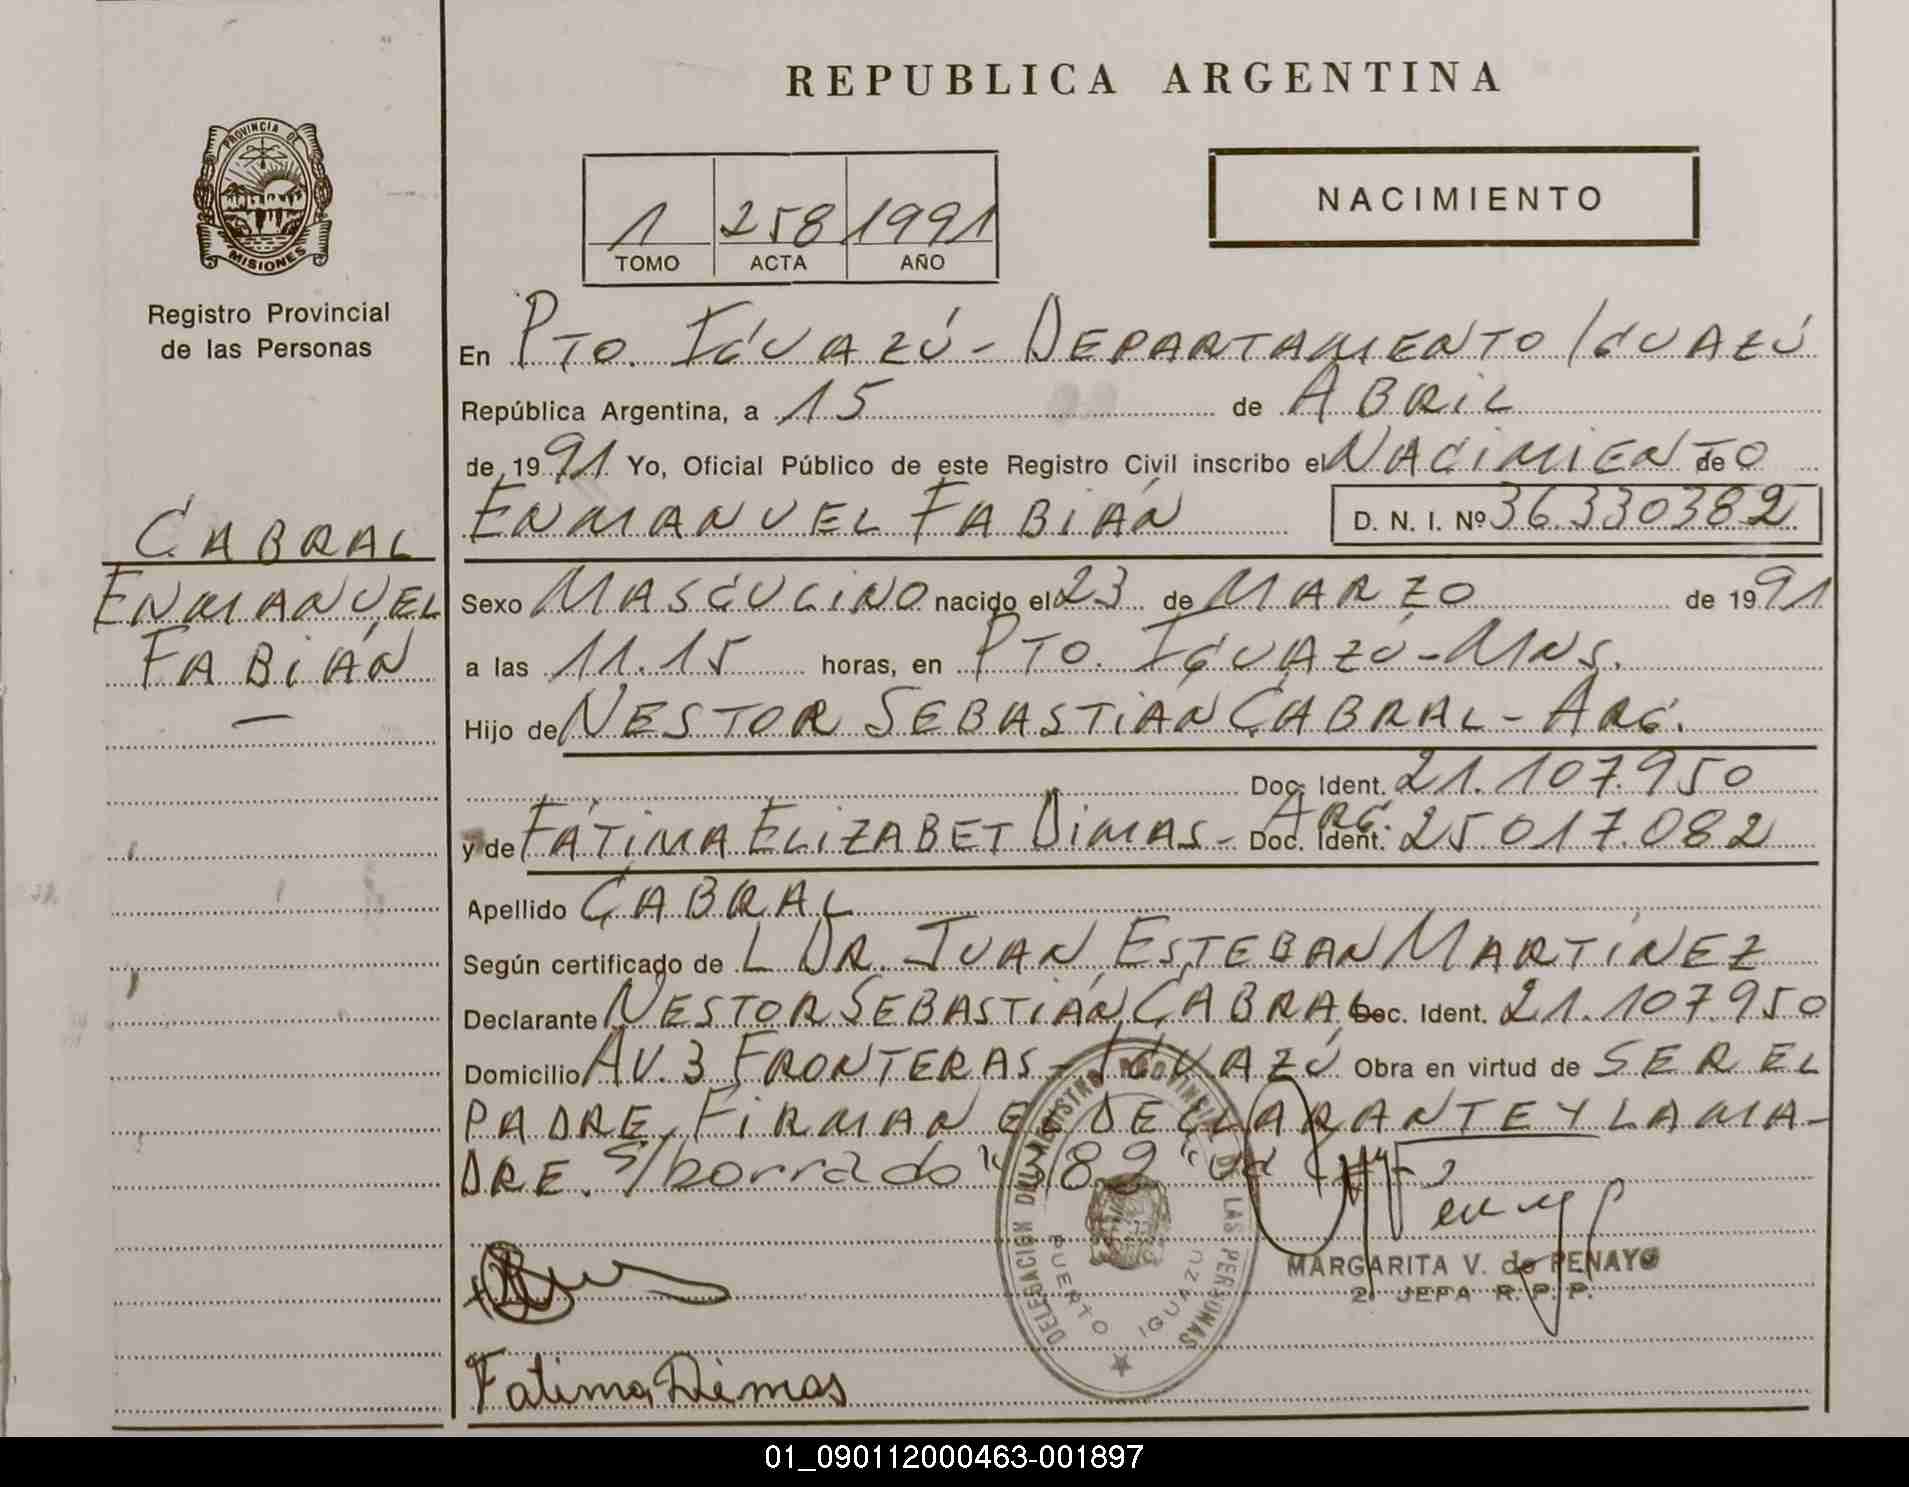 REPUBLICA ARGENTINA
PROVINCIA DE
MISIONES
Registro Provincial
de las Personas
CABRAL
ENMANUEL
FABIÁN
1 258 1991
TOMO ACTA AÑO
NACIMIENTO
En PTO. IGUAZÚ - DEPARTAMENTO IGUAZÚ
República Argentina, a 15 de ABRIL
de 1991 Yo, Oficial Público de este Registro Civil inscribo el NACIMIENTO de
ENMANUEL FABIÁN D. N. I. Nº 36330382
Sexo MASCULINO nacido el 23 de MARZO de 1991
a las 11.15 horas, en PTO. IGUAZÚ - MNS.
Hijo de NESTOR SEBASTIÁN CABRAL - ARG.
Doc. Ident. 21.107.950
y de FÁTIMA ELIZABET DIMAS - ARG. Doc. Ident. 25.017.082
Apellido CABRAL
Según certificado de L DR. JUAN ESTEBAN MARTÍNEZ
Declarante NESTOR SEBASTIÁN CABRAL Doc. Ident. 21.107.950
Domicilio AV. 3 FRONTERAS - IGUAZÚ Obra en virtud de SER EL
PADRE, FIRMAN EL DECLARANTE Y LA MA-
DRE. S/borrado "382"
DELEGACION DEL REGISTRO PROVINCIAL DE LAS PERSONAS
PUERTO IGUAZU
MARGARITA V. de PENAYO
2º JEFA R. P. P.
Fatima Dimas
01_090112000463-001897